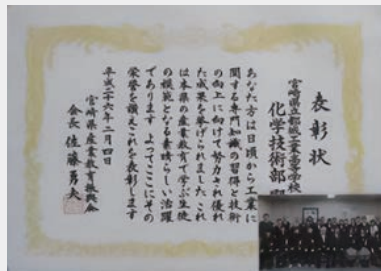 表彰状
宮崎県立都城工業高等学校
化学技術部
あなた方は日頃から工業に
関する専門知識の習得と技術
の向上に向けて努力され優れ
た成果を挙げられました これ
は本県の産業教育で学ぶ生徒
の模範となる素晴らしい活躍
であります よってここにその
栄誉を讃えこれを表彰します
平成二十六年二月四日
宮崎県産業教育振興会
会長 佐藤勇夫